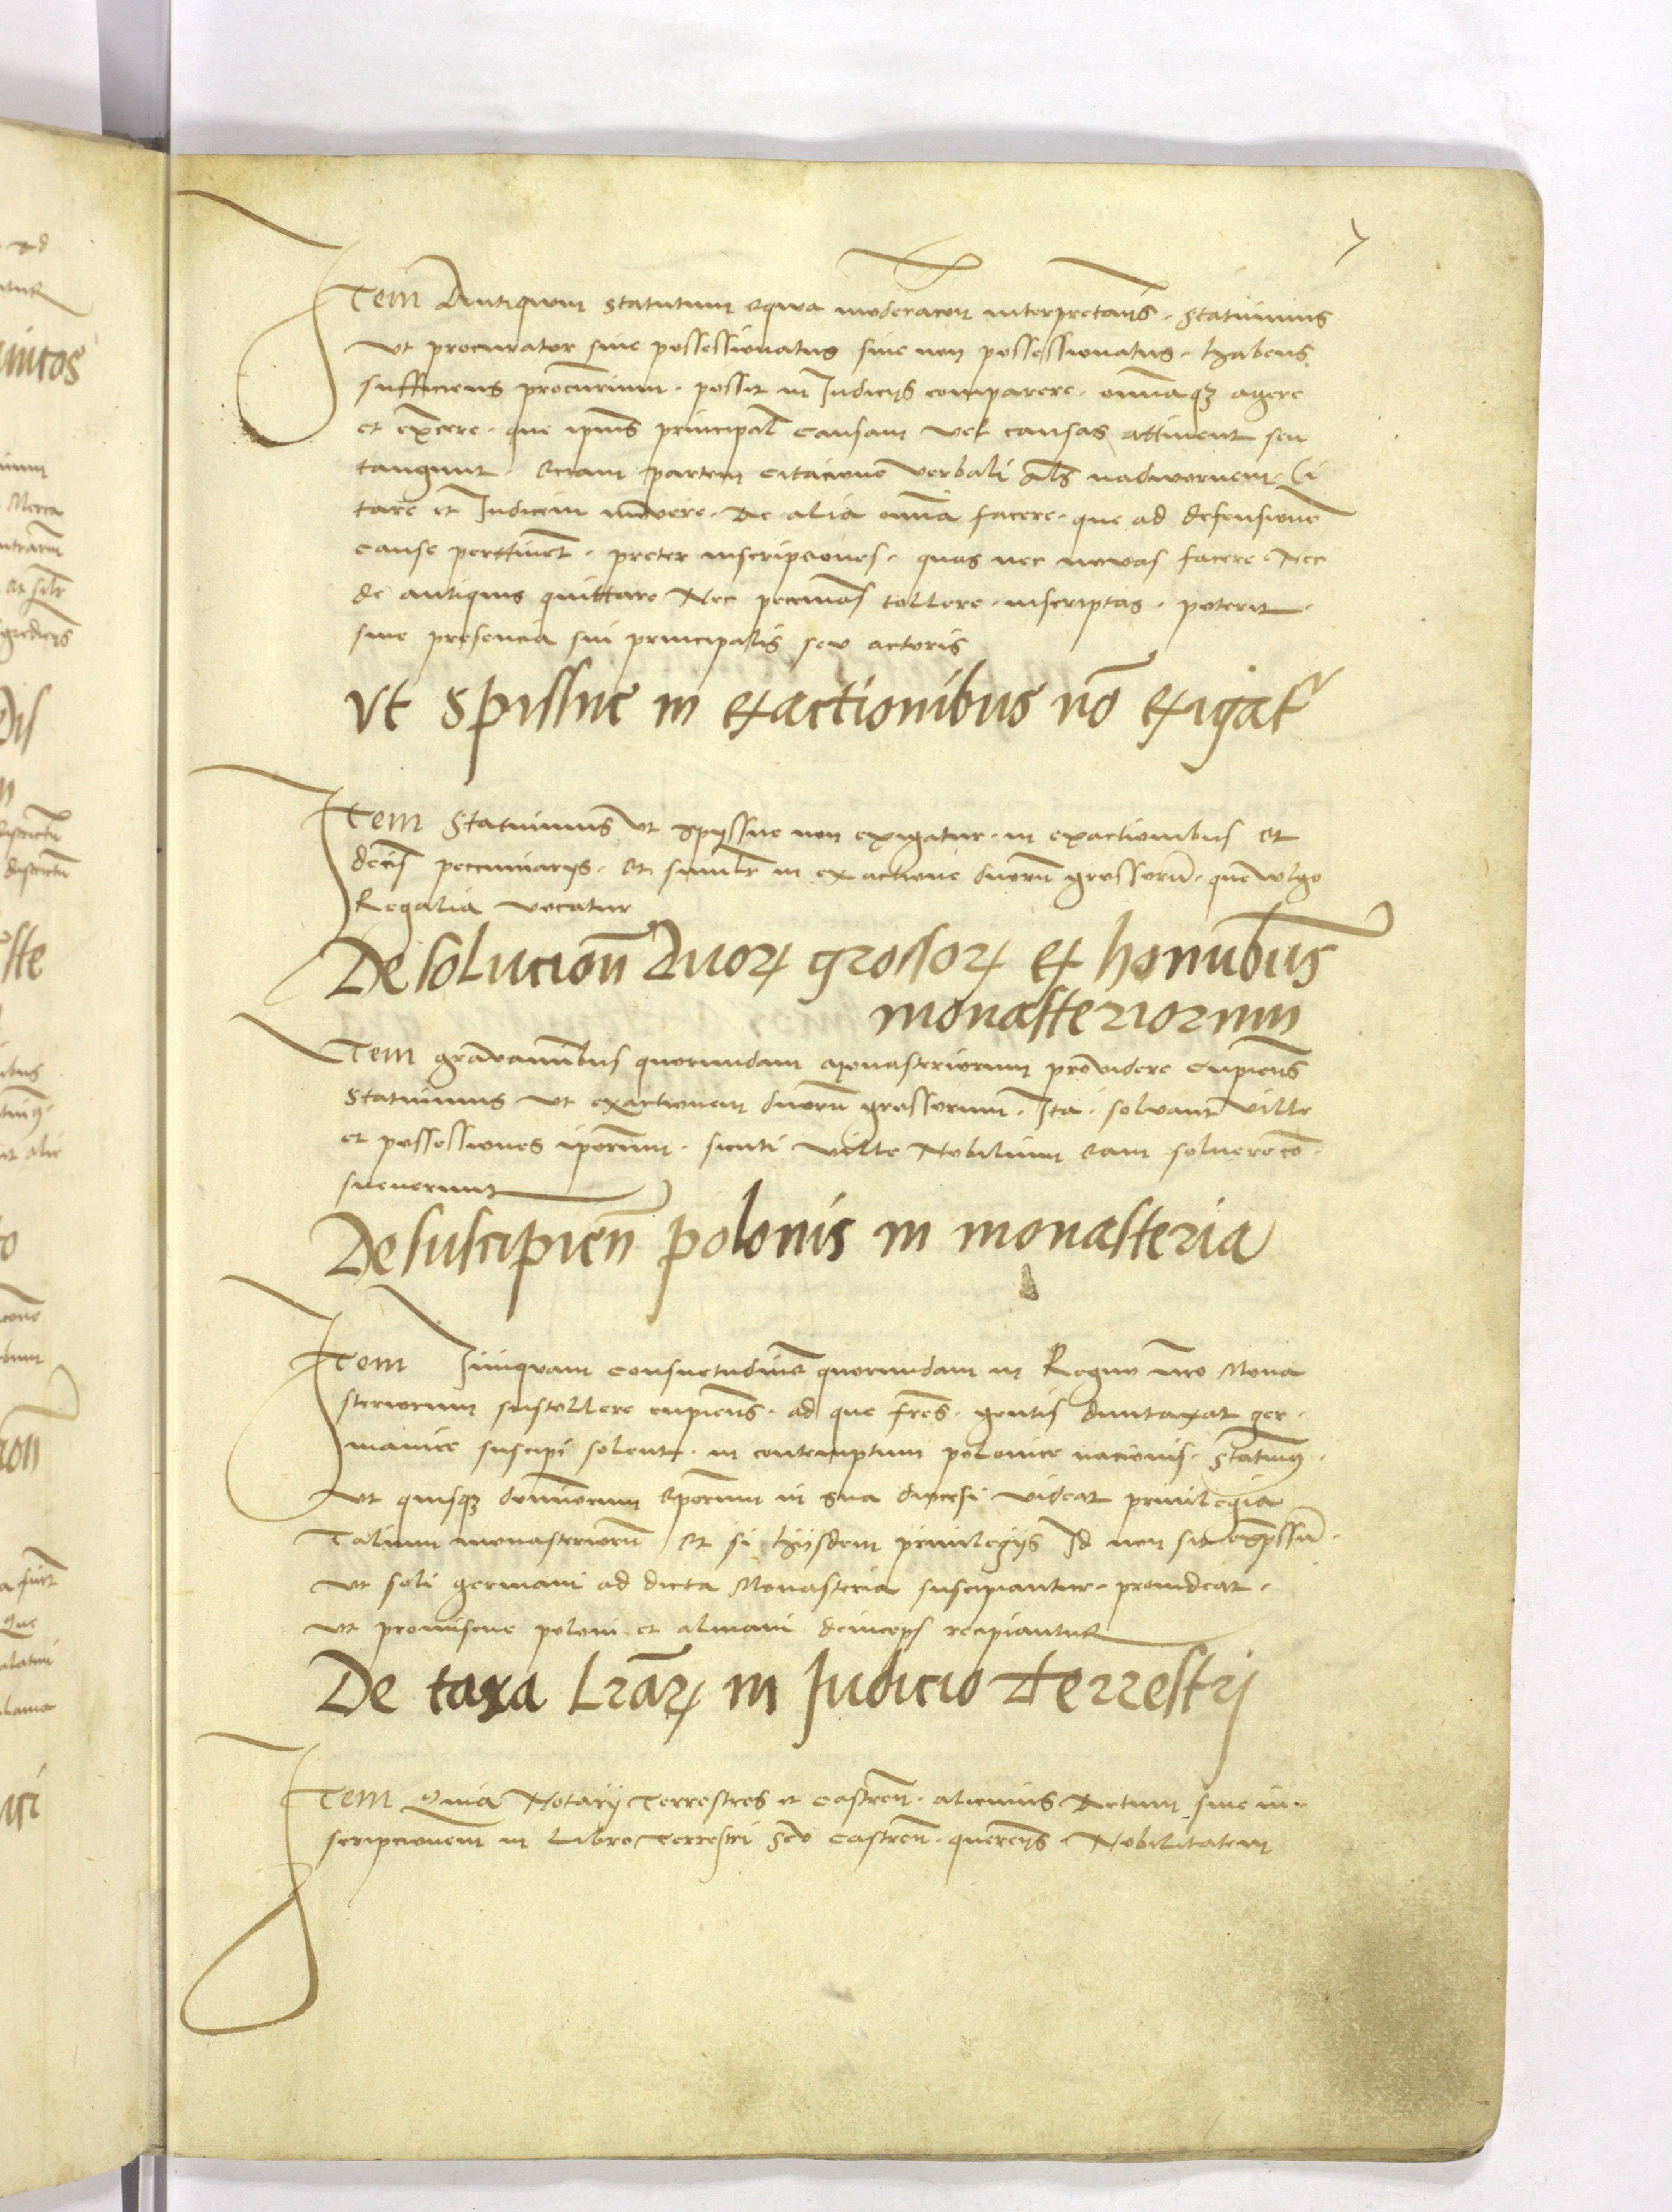 7
Item Antiquum statutum equa moderacōn interpretan̄s. Statuimus
Ut procurator siue possessionatus siue non possessionatus. habens
sufficiens procur̄ium. possit in Iudicijs comparere. omīaqꝫ agere
et exercere. que ip̄ius principal̄ causam vel causas attinent seu
tangunt. Eciam partem citacione verbali al̄s nadwornem. Ci
tare et Iudicem mōvere. Ac alia om̄ia facere. que ad defensionē
cause pertinēt. preter inscripciones. quas nec novas facere Nec
de antiquis quittare Nec peccunias tollere. inscriptas. poterit.
sine presencia sui principalis seu actoris
Vt spissne in exactionibus nō exigat͛
Item Statuimus vt spyssne non exigatur. in exactionibus et
dec̄is peccuniarijs. et simil̄r in exactione duorū grossorū. que wlgo
Regalia vocatur
De solucion̄ duoꝝ grossoꝝ ex honnībus
monasteriorum
Item gravamīnibus quorumdam Monasteriorum providere cupien̄s
Statuimus vt exactionem duorū grossorum. Ita. solvant ville
et possessiones ip̄orum. sicuti ville Nobilium eam soluere cō.
sueuerunt
De suscipien̄ polonis in monasteria
Item Iniquam consuetudinē quorumdam in Regno nr̄o Mona
steriorum sustollere cupien̄s. ad que fr̄es. gentis duntaxat ger.
manice suscipi solent. in contemptum polonice nacionis. Statuimꝰ.
Vt quisqꝫ dominorum ep̄orum in sua diocesi videat priuilegia
Talium monasteriorū et si hijsdem priuilegijs Id non sit exp̄ssū.
Vt soli germani ad dicta Monasteria suscipiantur. prouideat.
Vt promiscue poloni et almani deinceps recipiantur
De taxa lr̄aꝝ in Iudicio Terrestrj
Item Quia Notarij Terrestres et castren̄. alicuius Actum siue in.
scripcionem in Libro terrestri seu castren̄. queren̄s Nobilitatem